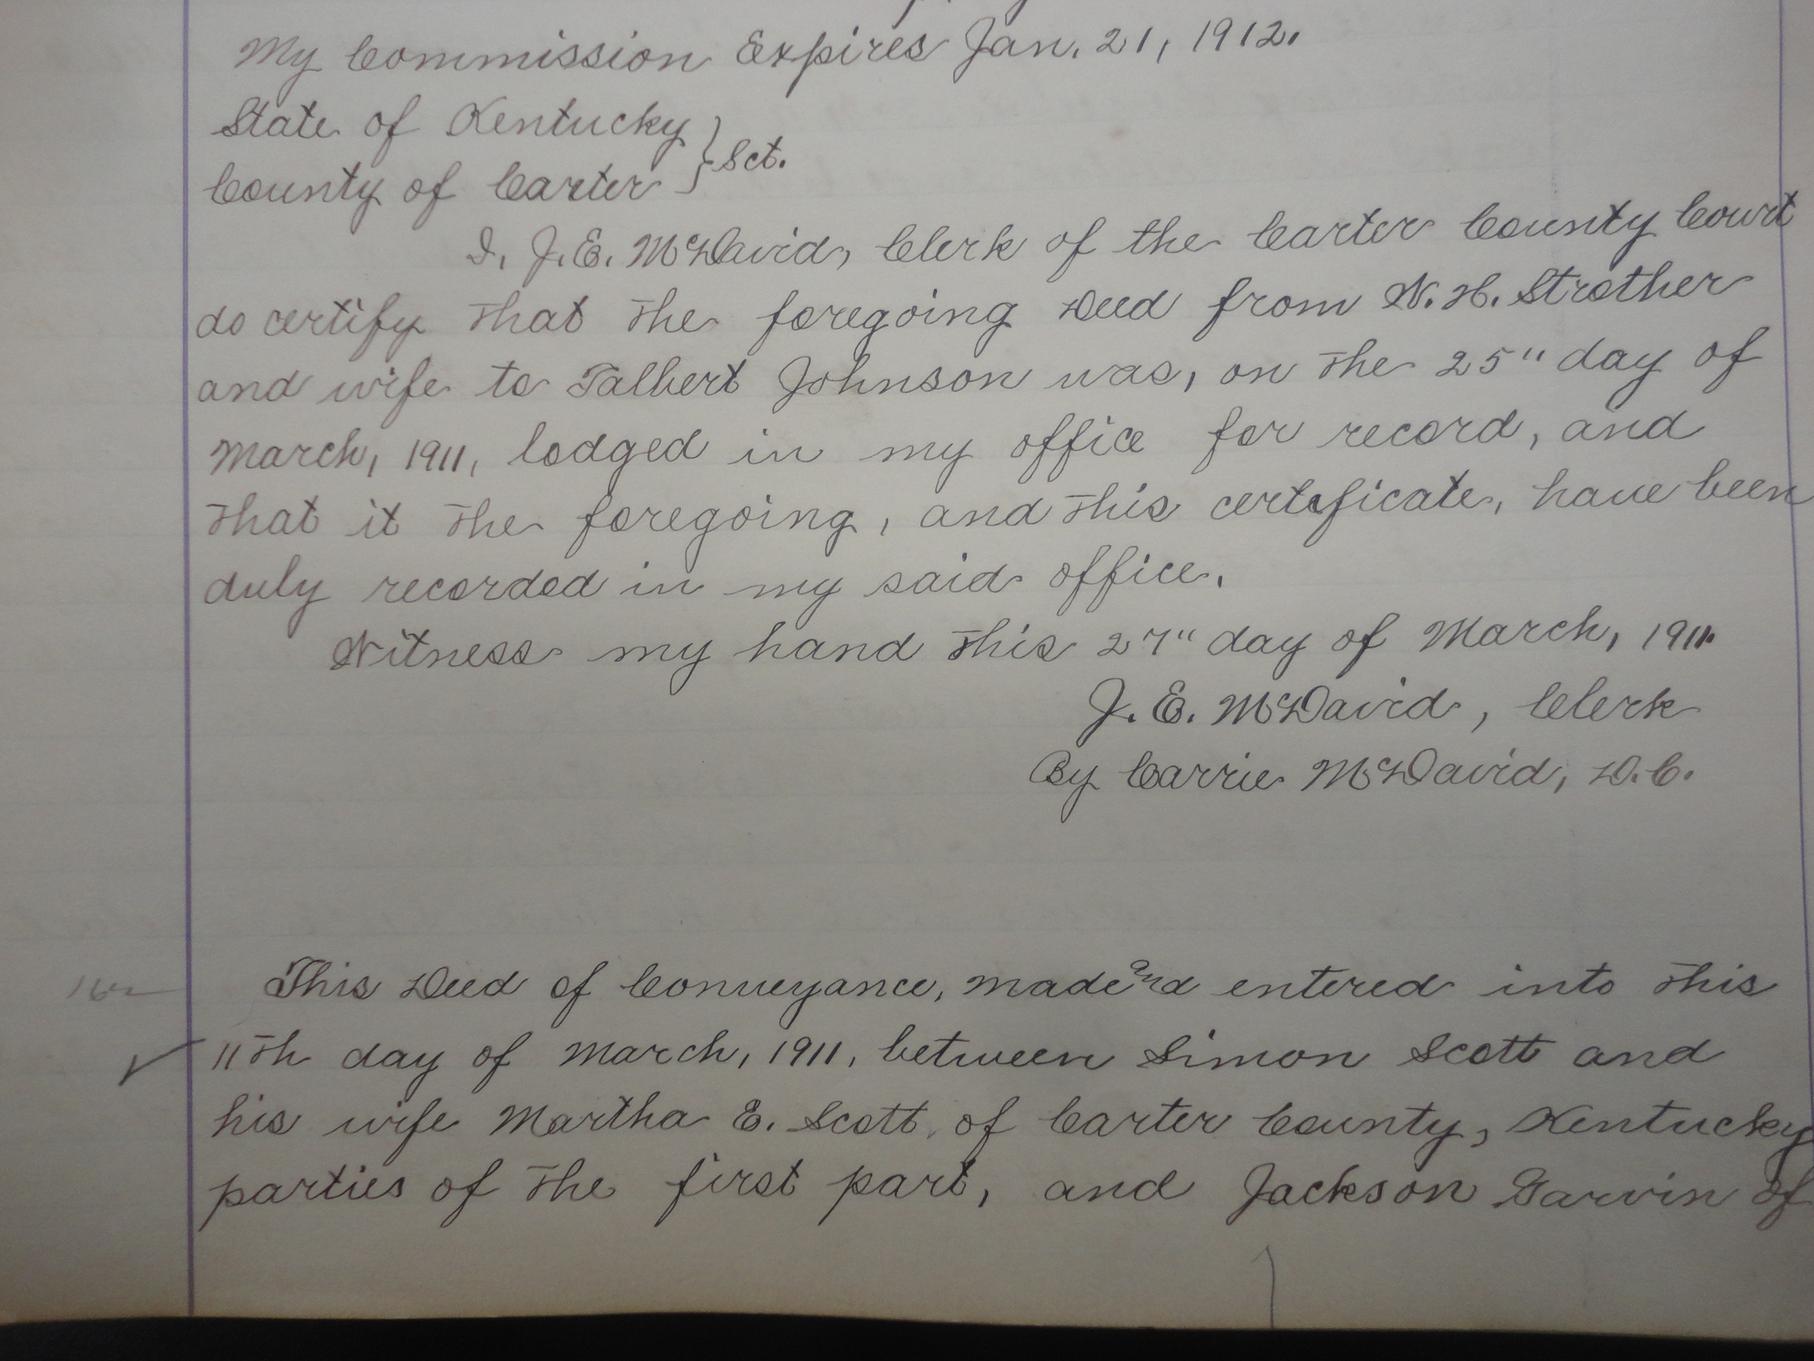 My Commission Expires Jan. 21, 1912.
State of Kentucky
County of Carter } Sct.
I, J.E. McDavid, Clerk of the Carter County Court
do certify that the foregoing Deed from W. H. Strother
and wife to Talbert Johnson was, on the 25" day of
March, 1911, lodged in my office for record, and
that it the foregoing, and this certificate, have been
duly recorded in my said office.
Witness my hand this 27" day of March, 1911.
J. E. McDavid, Clerk
By Carrie McDavid, D.C.
This Deed of Conveyance, made and entered into this
11th day of March, 1911, between Simon Scott and
his wife Martha E. Scott, of Carter County, Kentucky
parties of the first part, and Jackson Garvin of